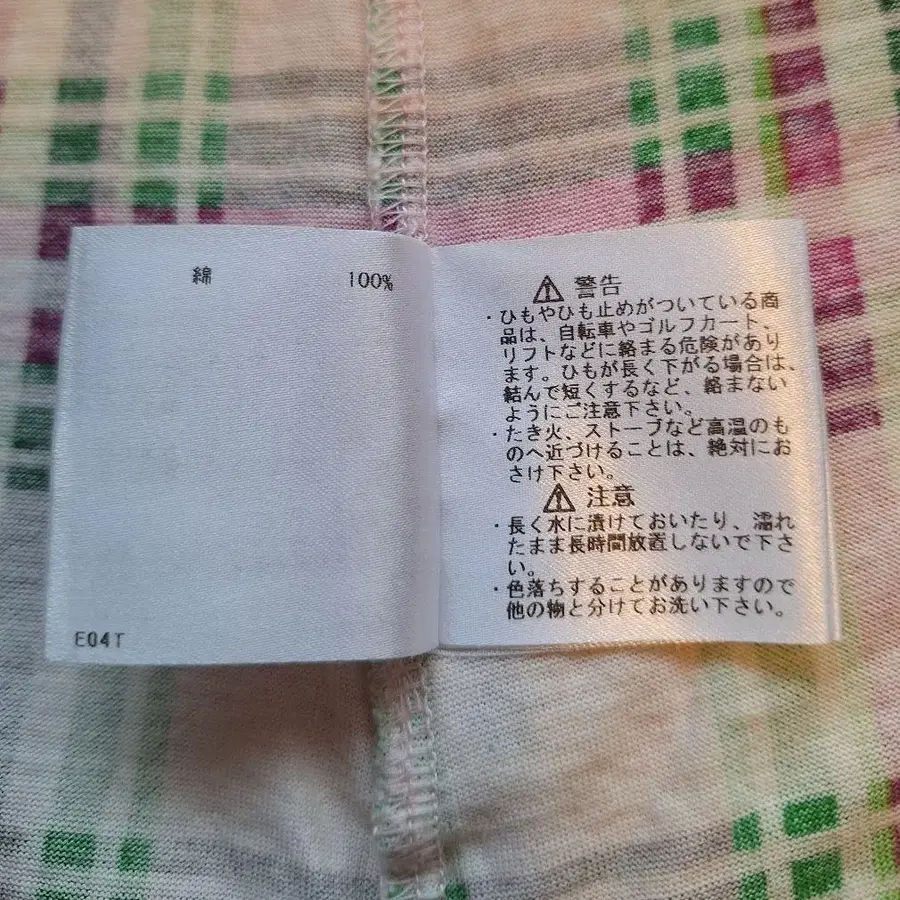 綿 100%
E04T
⚠ 警告
・ひもやひも止めがついている商
品は、自転車やゴルフカート、
リフトなどに絡まる危険があり
ます。ひもが長く下がる場合は、
結んで短くするなど、絡まない
ようにご注意下さい。
・たき火、ストーブなど高温のも
のへ近づけることは、絶対にお
さけ下さい。
⚠ 注意
・長く水に漬けておいたり、濡れ
たまま長時間放置しないで下さ
い。
・色落ちすることがありますので
他の物と分けてお洗い下さい。